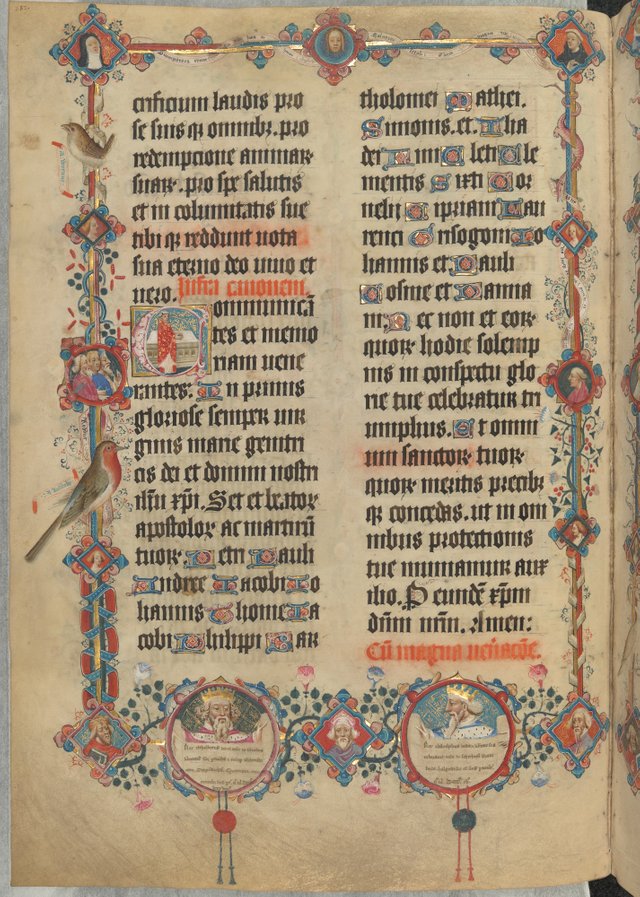 crificium laudis pro
se suis qʒ omnibꝫ. pro
redempcione animaꝝ
suaꝝ. pro spe salutis
et in columitatis sue
tibi qʒ reddunt uota
sua eterno deo uiuo et
uero. Infra canonem.
Communicā
tes et memo
riam uene
rantes. In primis
gloriose semper uir
ginis marie genitri
cis dei et domini nostri
ihū xp̄i. Set et beatoꝝ
apostoloꝝ ac martirū
tuoꝝ. Petri Pauli
Andree Iacobi Io
hannis Thome Ia
cobi Philippi Bar
tholomei Mathei.
Simonis. et. Tha
dei Lini Cleti Cle
mentis Sixti Cor
nelii Cipriani Lau
renci Grisogoni Io
hannis et Pauli
Cosme et Damia
ni Nec non et eoꝝ
quoꝝ hodie solemp
nis in conspectu glo
rie tue celebratur tri
umphus. Et omni
um sanctoꝝ tuoꝝ.
quoꝝ meritis precibꝫ
qʒ concedas. ut in om
nibus protectionis
tue muniamur auxi
lio. P eundē xp̄m
dn̄m nr̄m. Amen: